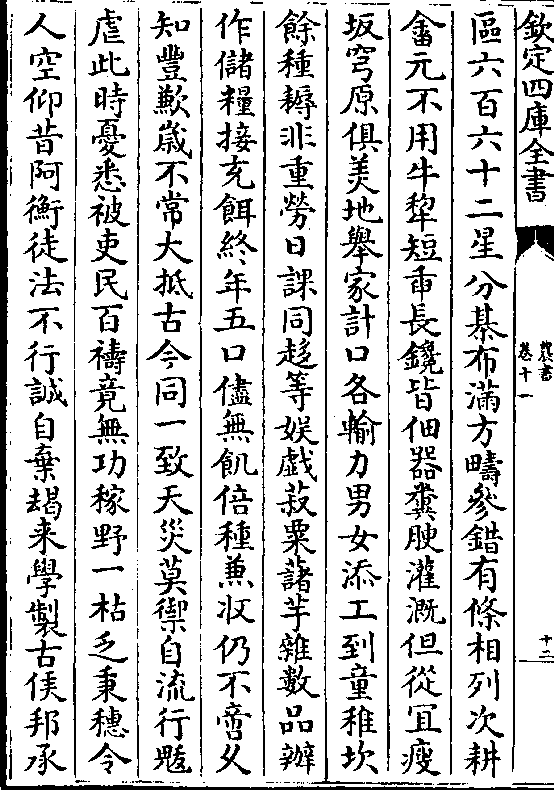 欽定四庫全書
農書
卷十一
十二
區六百六十二星分棊布滿方疇參錯有條相列次耕
畬元不用牛犂短臿長鑱皆佃器糞腴灌溉但從宜瘦
坂穹原俱美地舉家計口各輸力男女添工到童稚坎
餘種耨非重勞日課同趍等娱戯菽粟藷芋雜數品辦
作儲糧接充餌終年五口儘無飢倍種兼收仍不啻乆
知豐歉歳不常大抵古今同一致天災莫禦自流行魃
虐此時憂悉被吏民百禱竟無功稼野一枯乏秉穗令
人空仰昔阿衡徒法不行誠自棄朅来學製古侯邦承